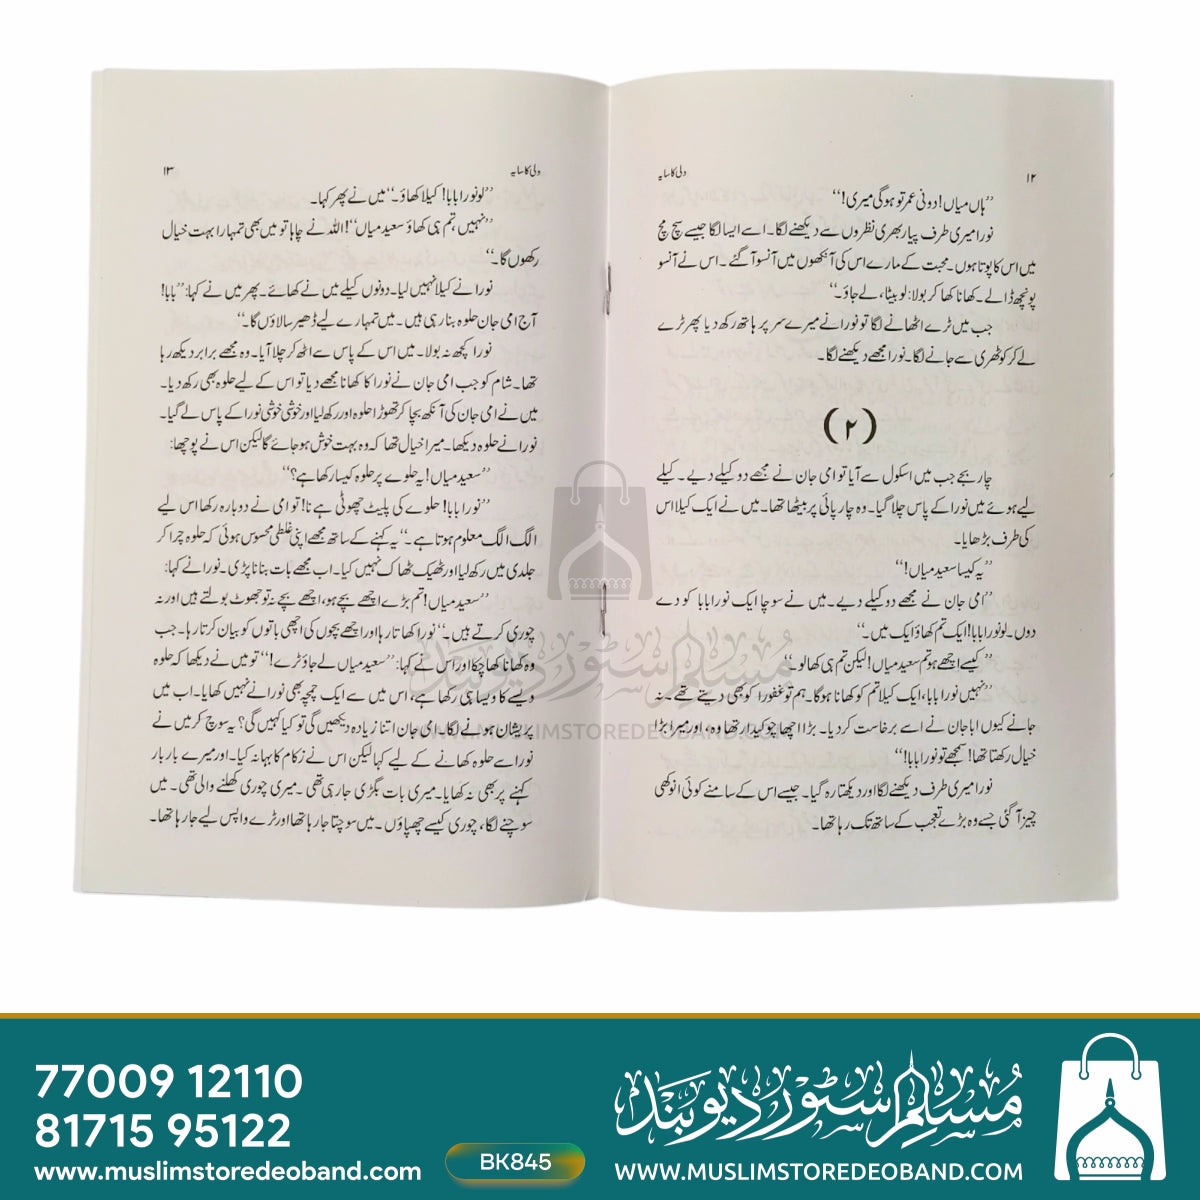 ۱۲
ولی کا سایہ
’’ہاں میاں! دونی عمر تو ہوگی میری!‘‘
نورا میری طرف پیار بھری نظروں سے دیکھنے لگا۔ اسے ایسا لگا جیسے سچ مچ
میں اس کا پوتا ہوں۔ محبت کے مارے اس کی آنکھوں میں آنسو آگئے۔ اس نے آنسو
پونچھ ڈالے۔ کھانا کھا کر بولا: لو بیٹا، لے جاؤ۔‘‘
جب میں ٹرے اٹھانے لگا تو نورا نے میرے سر پر ہاتھ رکھ دیا پھر ٹرے
لے کر کوٹھری سے جانے لگا۔ نورا مجھے دیکھنے لگا۔
(۲)
چار بجے جب میں اسکول سے آیا تو امی جان نے مجھے دو کیلے دیے۔ کیلے
لیے ہوئے میں نورا کے پاس چلا گیا۔ وہ چارپائی پر بیٹھا تھا۔ میں نے ایک کیلا اس
کی طرف بڑھایا۔
’’یہ کیسا سعید میاں!‘‘
’’امی جان نے مجھے دو کیلے دیے۔ میں نے سوچا ایک نورا بابا کو دے
دوں۔ لو نورا بابا! ایک تم کھاؤ ایک میں۔‘‘
’’کیسے اچھے ہو تم سعید میاں! لیکن تم ہی کھالو۔‘‘
’’نہیں نورا بابا، ایک کیلا تم کو کھانا ہوگا۔ ہم تو غفورا کو بھی دیتے تھے۔ نہ
جانے کیوں ابا جان نے اسے برخاست کردیا۔ بڑا اچھا چوکیدار تھا وہ، اور میرا بڑا
خیال رکھتا تھا! سمجھے تو نورا بابا!‘‘
نورا میری طرف دیکھنے لگا اور دیکھتا رہ گیا۔ جیسے اس کے سامنے کوئی انوکھی
چیز آگئی جسے وہ بڑے تعجب کے ساتھ تک رہا تھا۔
ولی کا سایہ
۱۳
’’لو نورا بابا! کیلا کھاؤ۔‘‘ میں نے پھر کہا۔
’’نہیں، تم ہی کھاؤ سعید میاں‘‘! اللہ نے چاہا تو میں بھی تمہارا بہت خیال
رکھوں گا۔‘‘
نورا نے کیلا نہیں لیا۔ دونوں کیلے میں نے کھائے۔ پھر میں نے کہا: ’’بابا!
آج امی جان حلوہ بنا رہی ہیں۔ میں تمہارے لیے ڈھیر سا لاؤں گا۔‘‘
نورا کچھ نہ بولا۔ میں اس کے پاس سے اٹھ کر چلا آیا۔ وہ مجھے برابر دیکھ رہا
تھا۔ شام کو جب امی جان نے نورا کا کھانا مجھے دیا تو اس کے لیے حلوہ بھی رکھ دیا۔
میں نے امی جان کی آنکھ بچا کر تھوڑا حلوہ اور رکھ لیا اور خوشی خوشی نورا کے پاس لے گیا۔
نورا نے حلوہ دیکھا۔ میرا خیال تھا کہ وہ بہت خوش ہو جائے گا لیکن اس نے پوچھا:
’’سعید میاں! یہ حلوے پر حلوہ کیسا رکھا ہے؟‘‘
’’نورا بابا! حلوے کی پلیٹ چھوٹی ہے نا! تو امی نے دوبارہ رکھا اس لیے
الگ الگ معلوم ہوتا ہے۔‘‘ یہ کہنے کے ساتھ مجھے اپنی غلطی محسوس ہوئی کہ حلوہ چرا کر
جلدی میں رکھ لیا اور ٹھیک ٹھاک نہیں کیا۔ اب مجھے بات بنانا پڑی۔ نورا نے کہا:
’’سعید میاں! تم بڑے اچھے بچے ہو، اچھے بچے نہ تو جھوٹ بولتے ہیں اور نہ
چوری کرتے ہیں۔‘‘ نورا کھاتا رہا اور اچھے بچوں کی اچھی باتوں کو بیان کرتا رہا۔ جب
وہ کھانا کھا چکا اور اس نے کہا: ’’سعید میاں لے جاؤ ٹرے!‘‘ تو میں نے دیکھا کہ حلوہ
ویسے کا ویسا ہی رکھا ہے، اس میں سے ایک چمچہ بھی نورا نے نہیں کھایا۔ اب میں
پریشان ہونے لگا۔ امی جان اتنا زیادہ دیکھیں گی تو کیا کہیں گی؟ یہ سوچ کر میں نے
نورا سے حلوہ کھانے کے لیے کہا لیکن اس نے زکام کا بہانہ کیا۔ اور میرے بار بار
کہنے پر بھی نہ کھایا۔ میری بات بگڑی جا رہی تھی۔ میری چوری کھلنے والی تھی۔ میں
سوچنے لگا، چوری کیسے چھپاؤں۔ میں سوچتا جا رہا تھا اور ٹرے واپس لیے جا رہا تھا۔
مسلم سٹور دیوبند
WWW.MUSLIMSTOREDEOBAND.COM
77009 12110
81715 95122
www.muslimstoredeoband.com
BK845
مسلم سٹور دیوبند
WWW.MUSLIMSTOREDEOBAND.COM